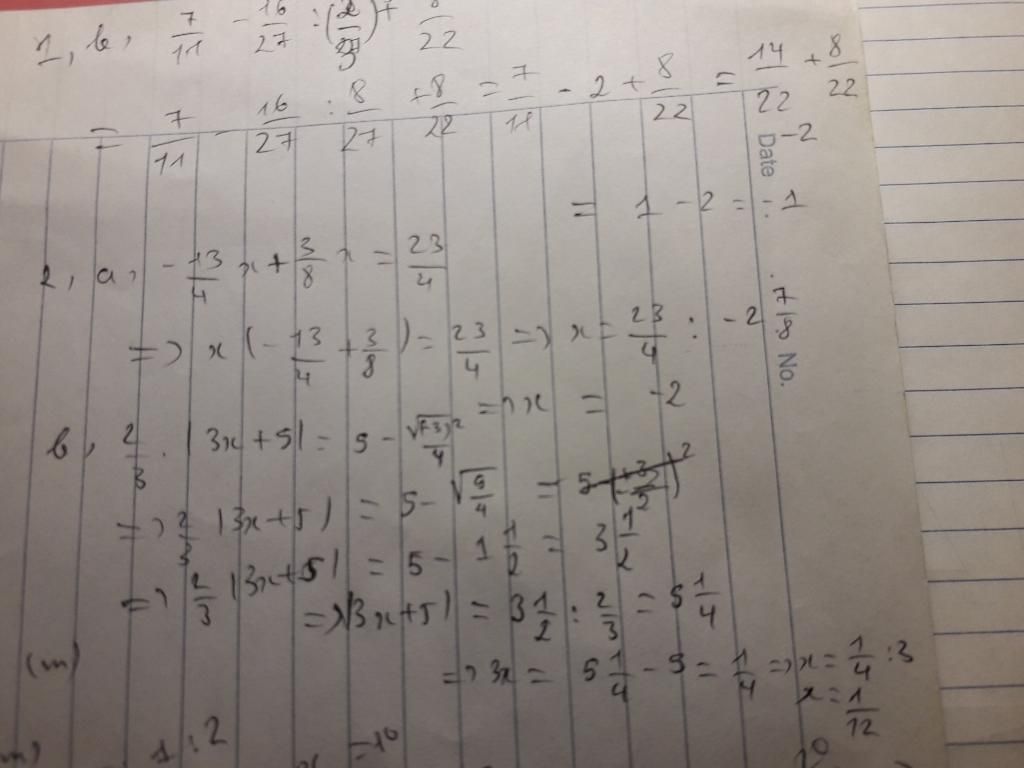 1, b, 7/11 - 16/27 : (2/3)^3 + 8/22
= 7/11 - 16/27 : 8/27 + 8/22 = 7/11 - 2 + 8/22 = 14/22 + 8/22 - 2
Date
= 1 - 2 = -1
2, a, -13/4 x + 3/8 x = 23/4
=> x (-13/4 + 3/8) = 23/4 => x = 23/4 : -2 7/8
No.
=> x = -2
b, 2/3 . |3x+5| = 5 - √(-3)²/4
=> 2/3 |3x+5| = 5 - √9/4 = 5
=> 2/3 |3x+5| = 5 - 1 1/2 = 3 1/2
=> |3x+5| = 3 1/2 : 2/3 = 5 1/4
(m) => 3x = 5 1/4 - 5 = 1/4 => x = 1/4 : 3
x = 1/12
1 : 2